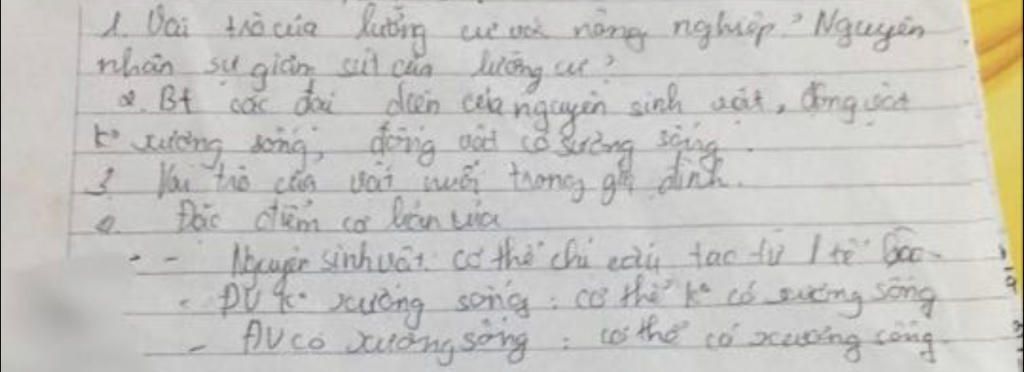 1. Vai trò của lưỡng cư với nông nghiệp? Nguyên
nhân sự giảm sút của lưỡng cư?
2. Bt các đại diện của nguyên sinh vật, động vật
k° xương sống, động vật có xương sống.
3. Vai trò của vật nuôi trong gia đình.
Đặc điểm cơ bản của
- Nguyên sinh vật: cơ thể chỉ cấu tạo từ 1 tế bào
- ĐV k° xương sống: cơ thể k° có xương sống
- ĐV có xương sống: cơ thể có xương sống